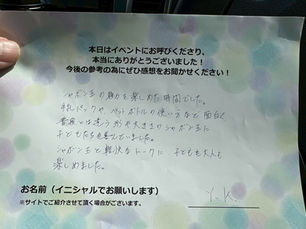 本日はイベントにお呼びくださり、
本当にありがとうございました！
今後の参考の為にぜひ感想をお聞かせください！
シャボン玉の魅力を楽しめた時間でした。
牛乳パックやペットボトルの使い方など面白く
普段とは違う形や大きさのシャボン玉に
子どもたちも喜んでいました。
シャボン玉と軽快なトークに、子どもも大人も
楽しめました。
お名前（イニシャルでお願いします）
※サイトでご紹介させて頂く場合がございます。
Y.K.